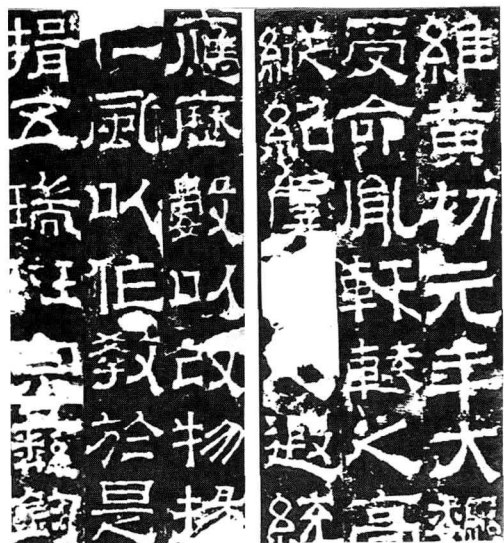 維黃初元年大魏
受命胤軒轅之高
縱紹虞遐統
應歷數以改物揚
仁風以作教於是
揖五瑞班宗彝鈞